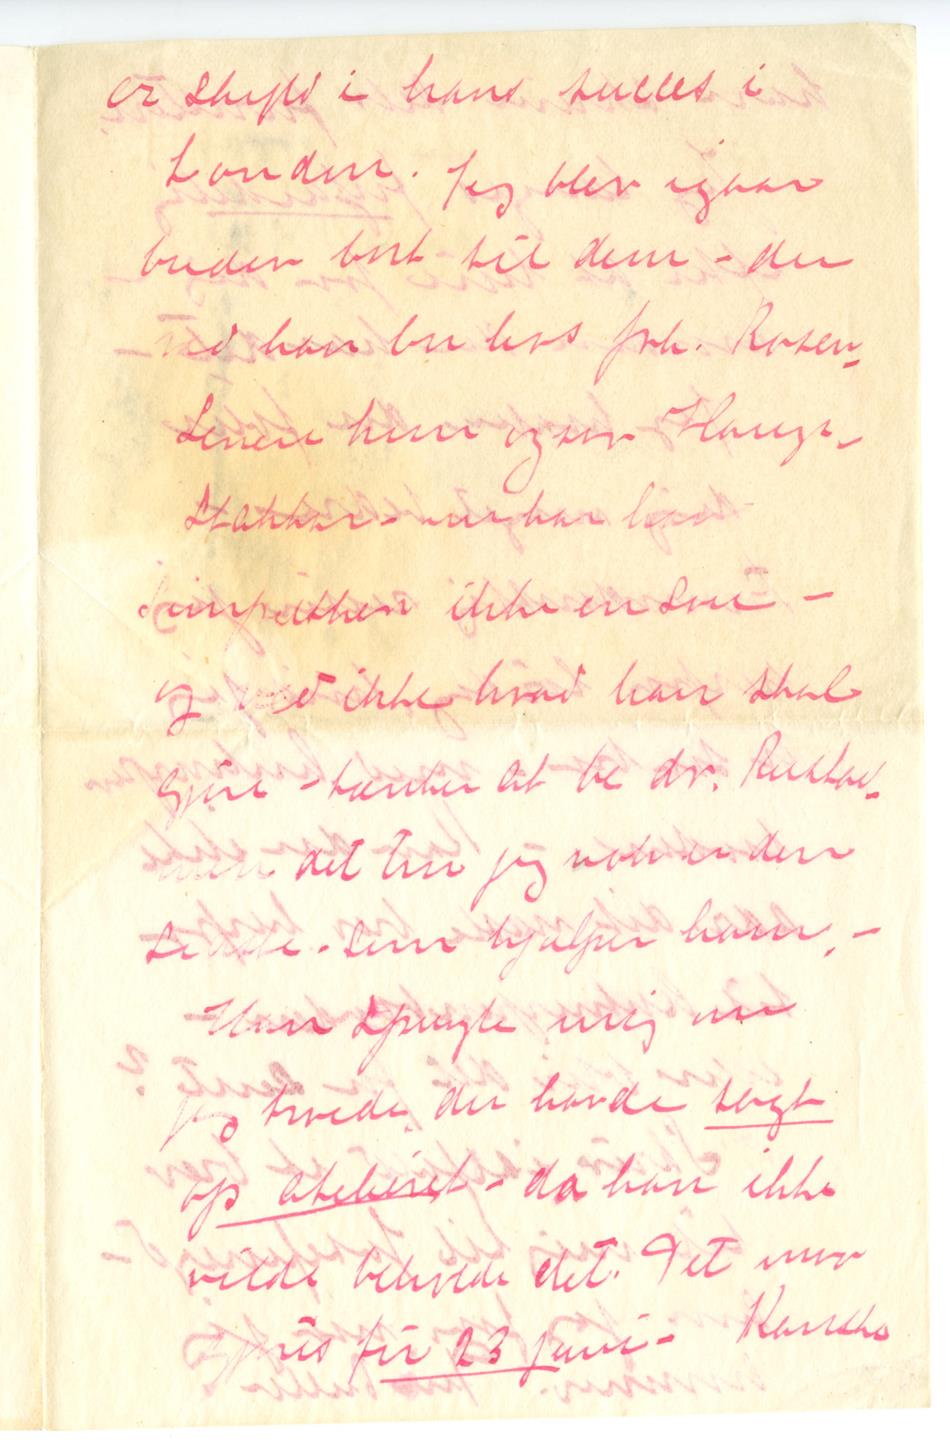 er skyld i hans succes i
London. Jeg blev igaar
buden bort til dem - der
ved han bu hos frk. Rosen-
hun og saa Haug-
Stakkar - nu har
ikke en Sou -
og ved ikke hvad han skal
gjøre - tænker at be dr. Rustad -
men det tror jeg nok er den
sidste - som hjælper ham. -
Han spurgte mig om
jeg troede, der havde sagt
op atelieret - da han ikke
vilde behøve det. Det maa
gjøres før 23 juni - Kanske